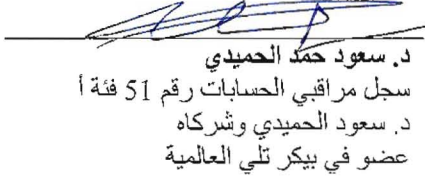 د. سعود حمد الحميدي
سجل مراقبي الحسابات رقم 51 فئة أ
د. سعود الحميدي وشركاه
عضو في بيكر تلي العالمية